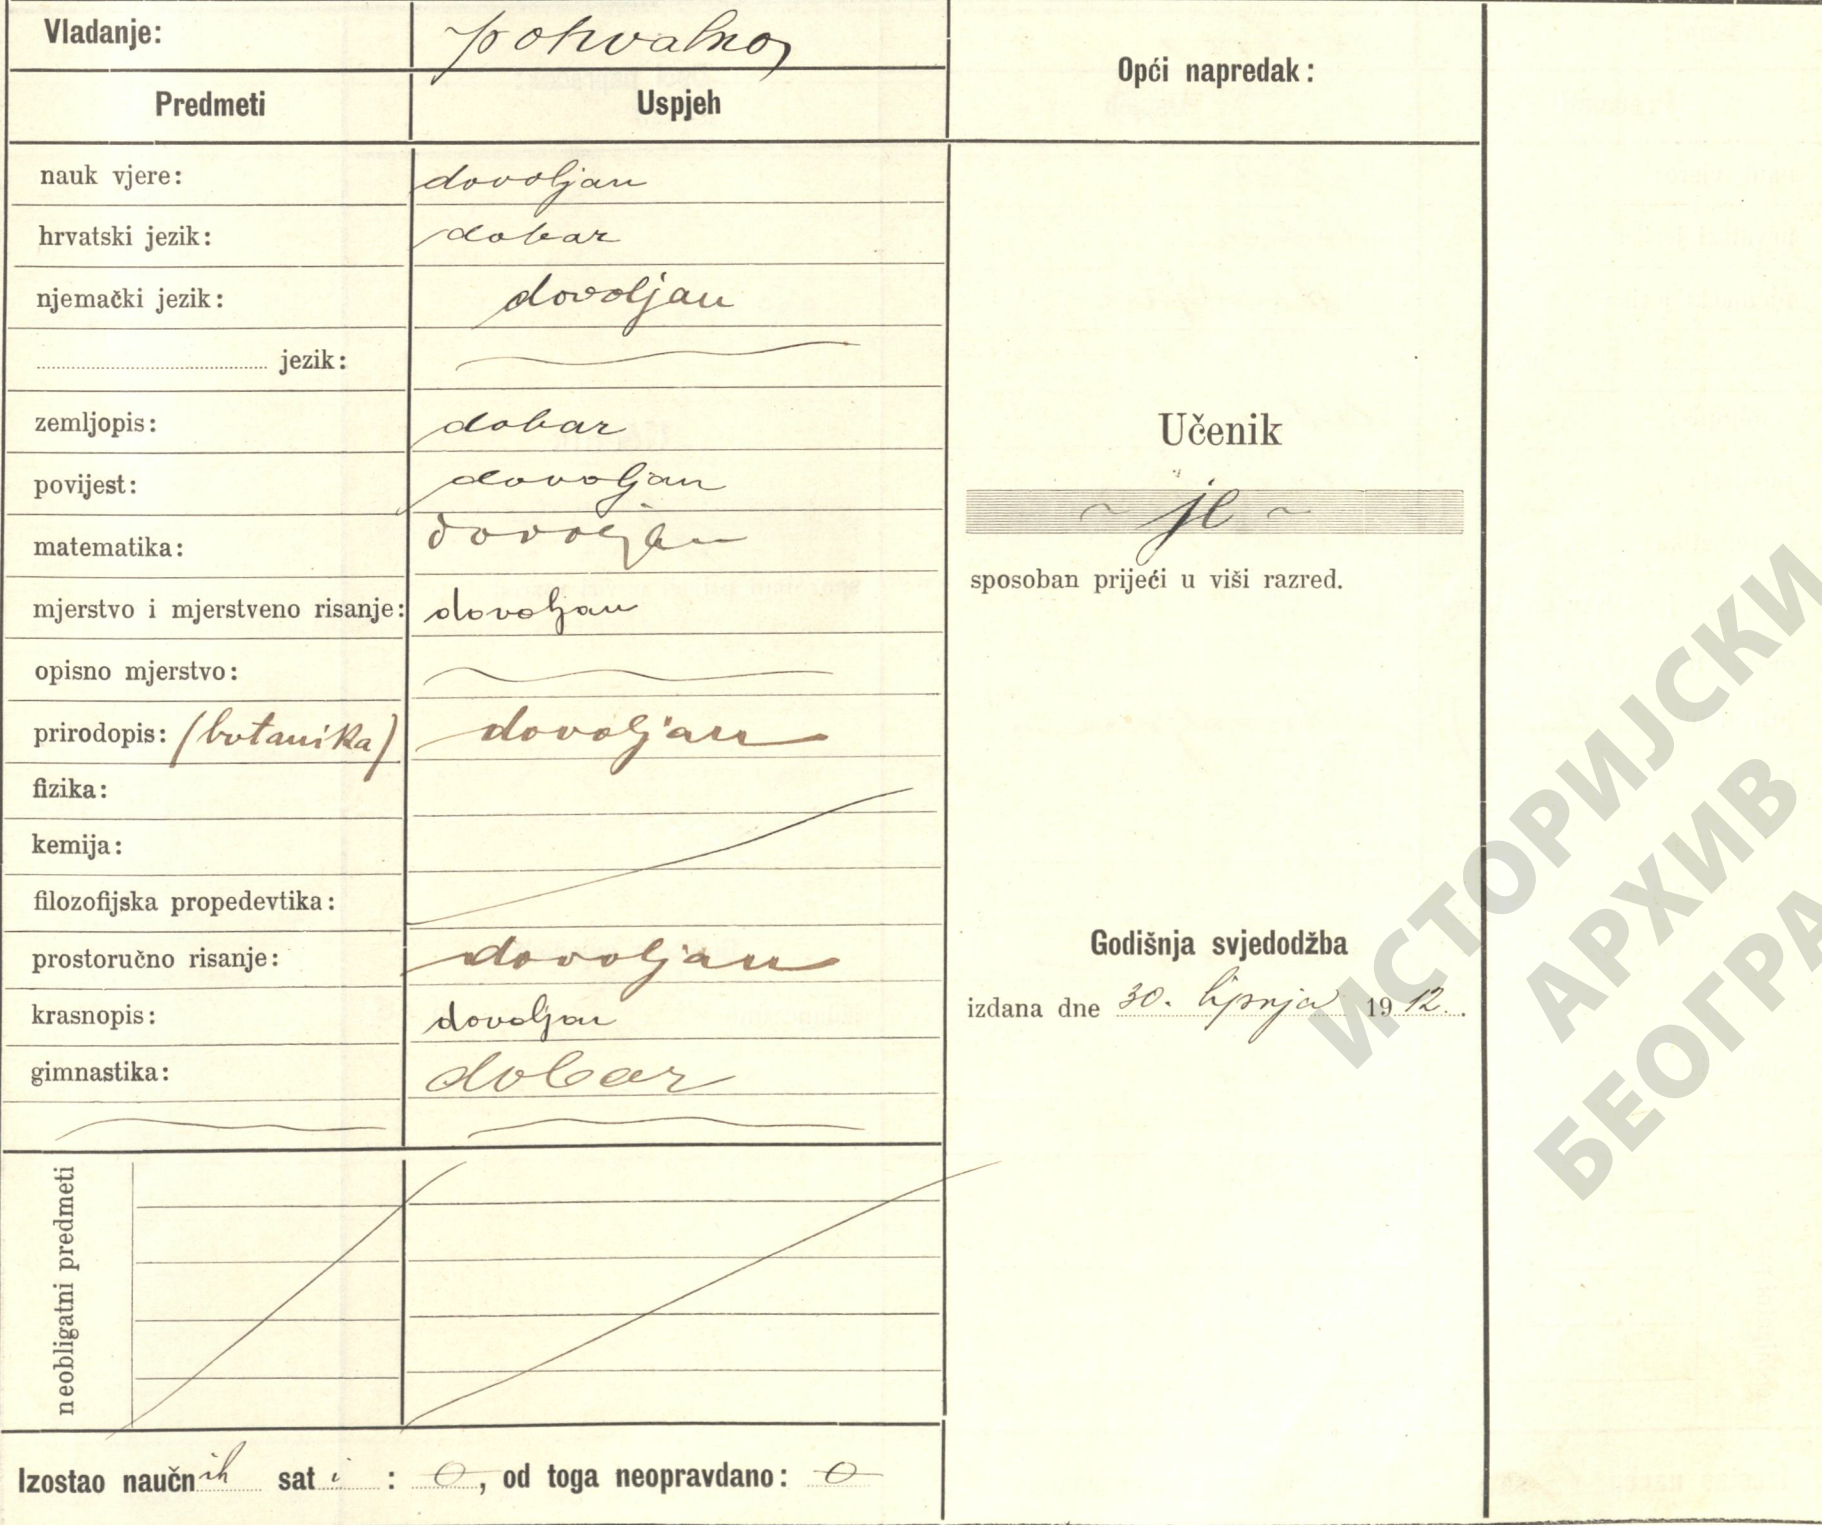 Vladanje: pohvalno
Predmeti Uspjeh Opći napredak:
nauk vjere: dovoljan
hrvatski jezik: dobar
njemački jezik: dovoljan
jezik:
zemljopis: dobar
povijest: dovoljan
matematika: dovoljan
mjerstvo i mjerstveno risanje: dovoljan
opisno mjerstvo:
prirodopis: (botanika) dovoljan
fizika:
kemija:
filozofijska propedevtika:
prostoručno risanje: dovoljan
krasnopis: dovoljan
gimnastika: dobar
neobligatni predmeti
Izostao naučnih sati: 0, od toga neopravdano: 0
Učenik
~ je ~
sposoban prijeći u viši razred.
Godišnja svjedodžba
izdana dne 30. lipnja 1912.
ИСТОРИЈСКИ
АРХИВ
БЕОГРА